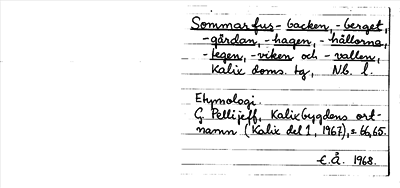 Sommarfus-backen, -berget,
-gårdan, -hagen, -hållorna,
-tegen, -viken och -vallen,
Kalix doms. tg, N.b. l.
Etymologi.
G. Pellijeff, Kalixbygdens ort-
namn (Kalix del 1, 1967), s 66, 65.
E.Å. 1968.